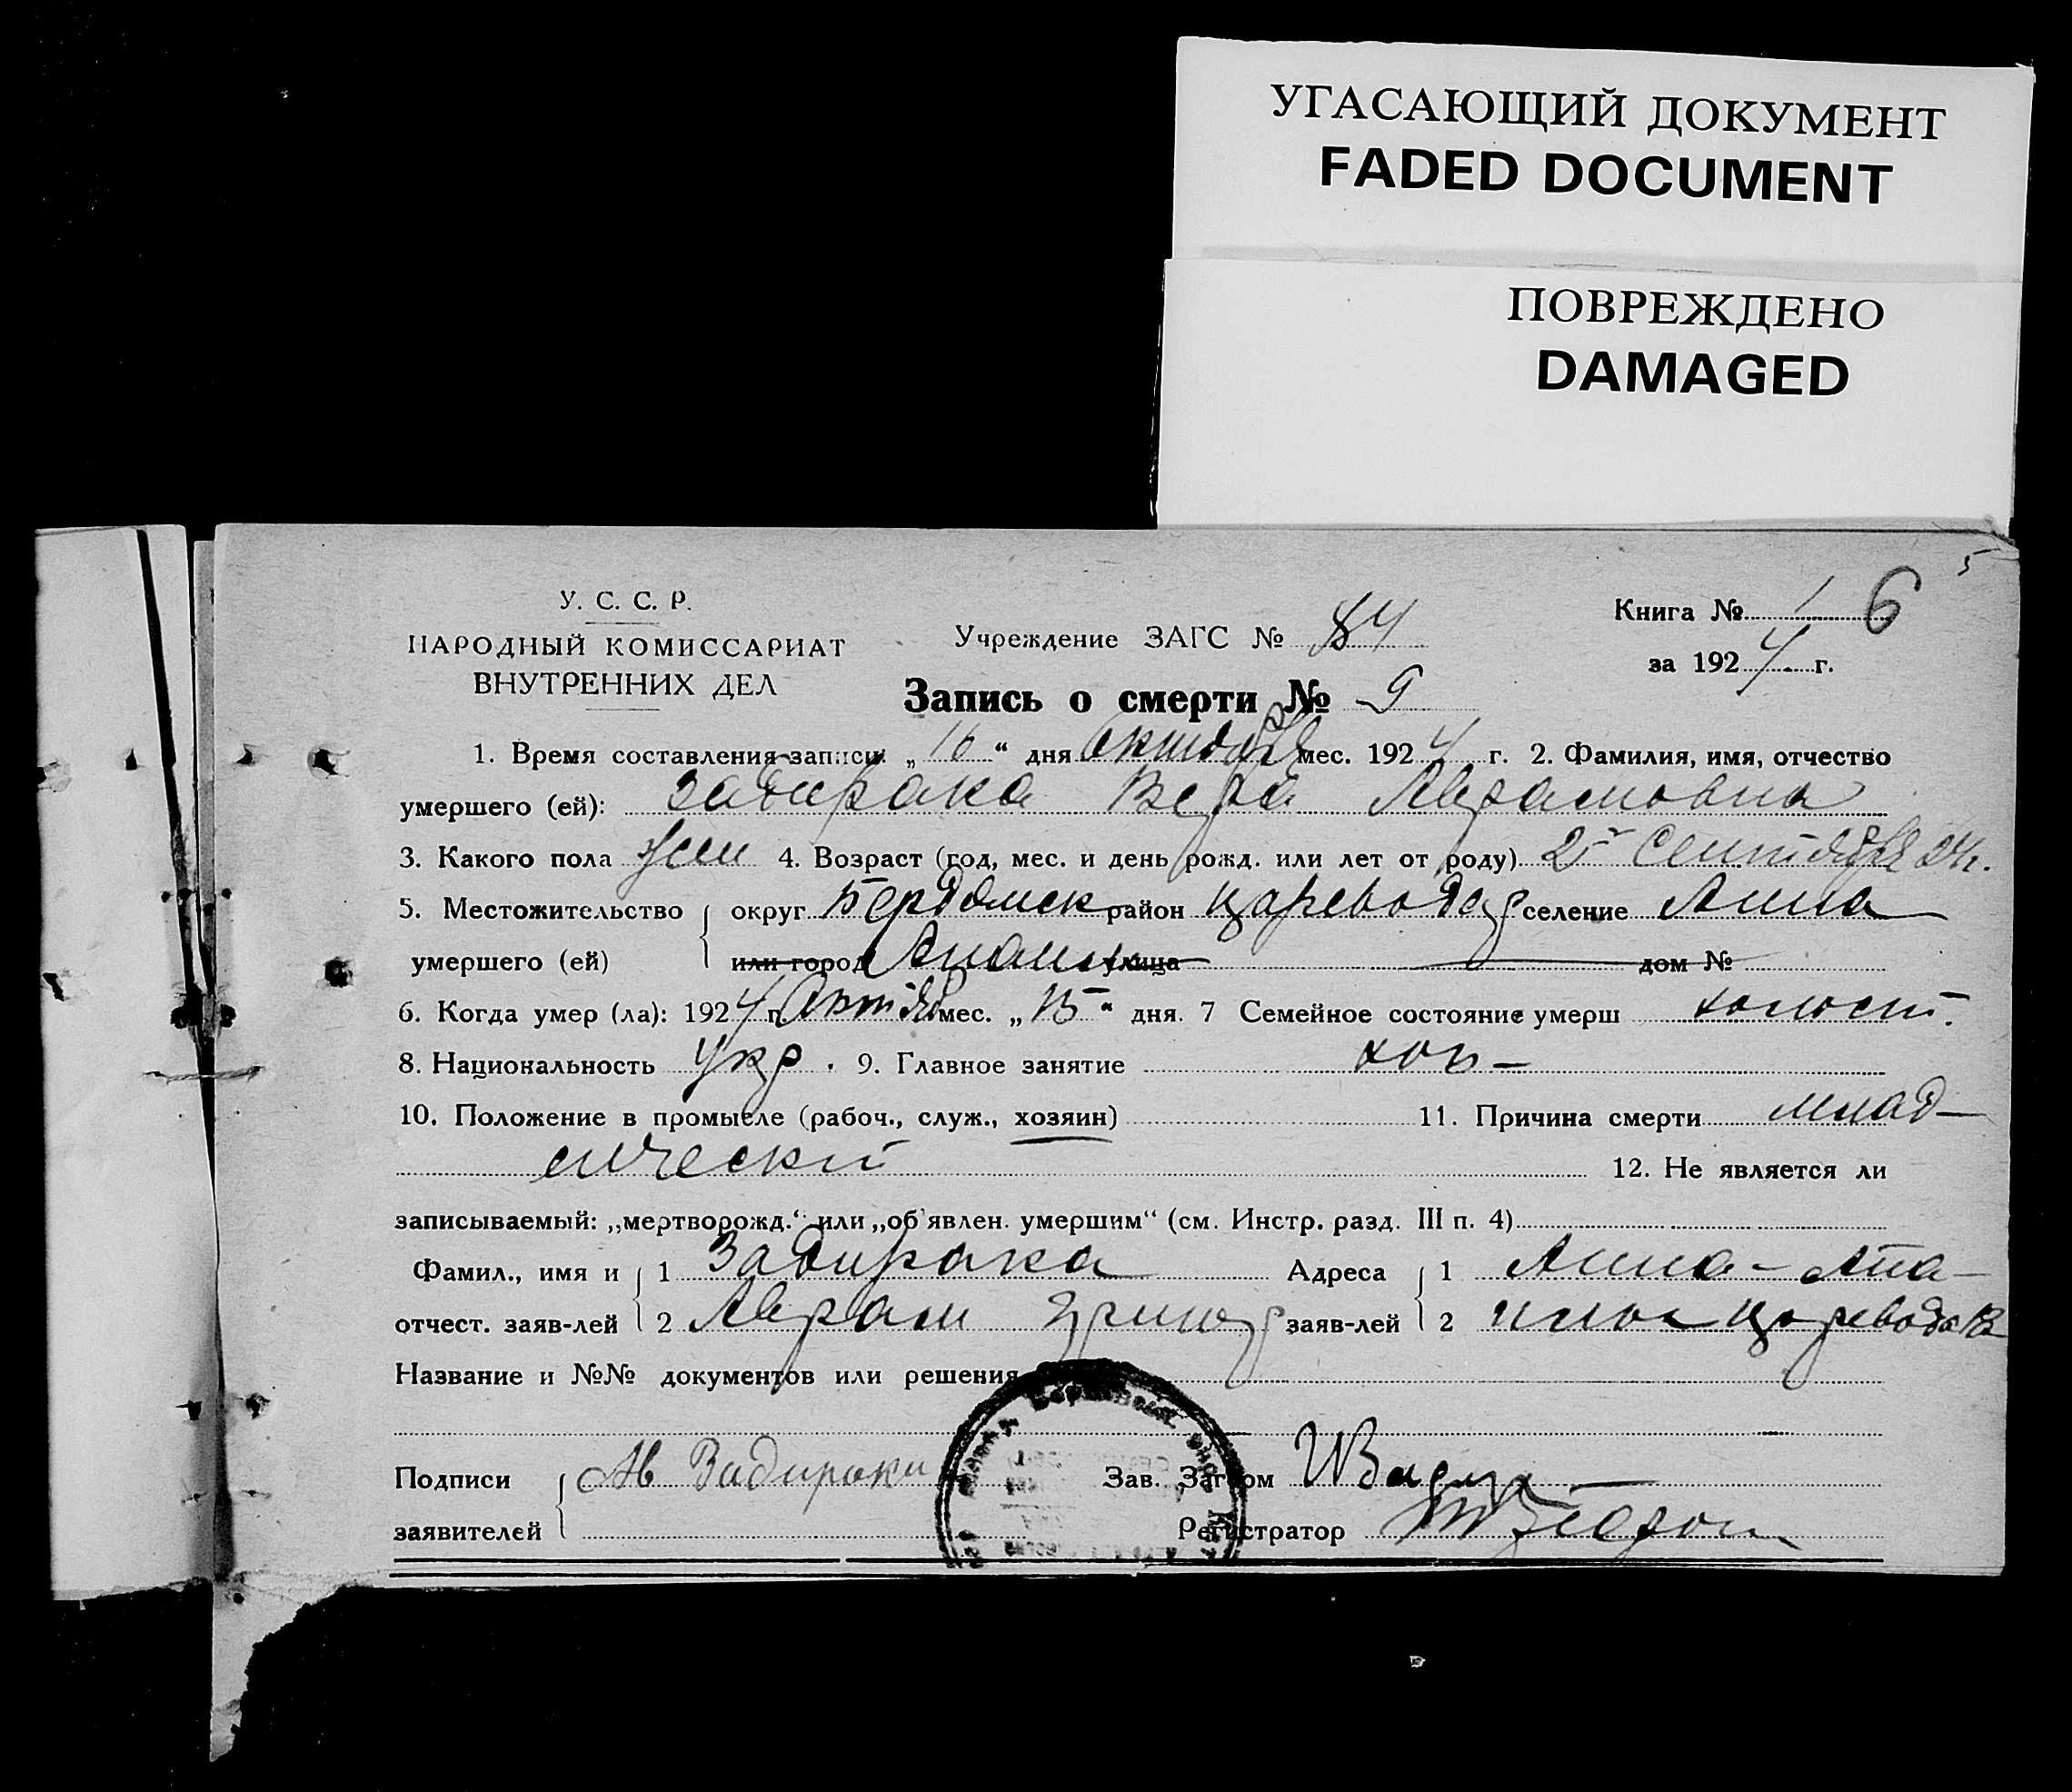 УГАСАЮЩИЙ ДОКУМЕНТ
FADED DOCUMENT
ПОВРЕЖДЕНО
DAMAGED
5
У. С. С. Р.
НАРОДНЫЙ КОМИССАРИАТ
ВНУТРЕННИХ ДЕЛ
Учреждение ЗАГС № 84
Книга № 1 6
за 1924 г.
Запись о смерти № 9
1. Время составления записи: „16“ дня Октября мес. 1924 г. 2. Фамилия, имя, отчество
умершего (ей): Задирака Вера Аврамовна
3. Какого пола жен 4. Возраст (год, мес. и день рожд. или лет от роду) 25 Сентября 24 г.
5. Местожительство округ Бердянск район Царевода селение Анна
умершего (ей) или город улица дом №
6. Когда умер (ла): 1924 г. Октяб мес. „15“ дня. 7 Семейное состояние умерш холост.
8. Национальность укр. 9. Главное занятие хоз-
10. Положение в промысле (рабоч., служ., хозяин) 11. Причина смерти млад-
енческий 12. Не является ли
записываемый: „мертворожд.“ или „об'явлен. умершим“ (см. Инстр. разд. III п. 4)
Фамил., имя и 1 Задирака Адреса 1 Анна-
отчест. заяв-лей 2 Аврам заяв-лей 2
Название и №№ документов или решения
Подписи Ав Задирака Зав. Загсом
заявителей Регистратор